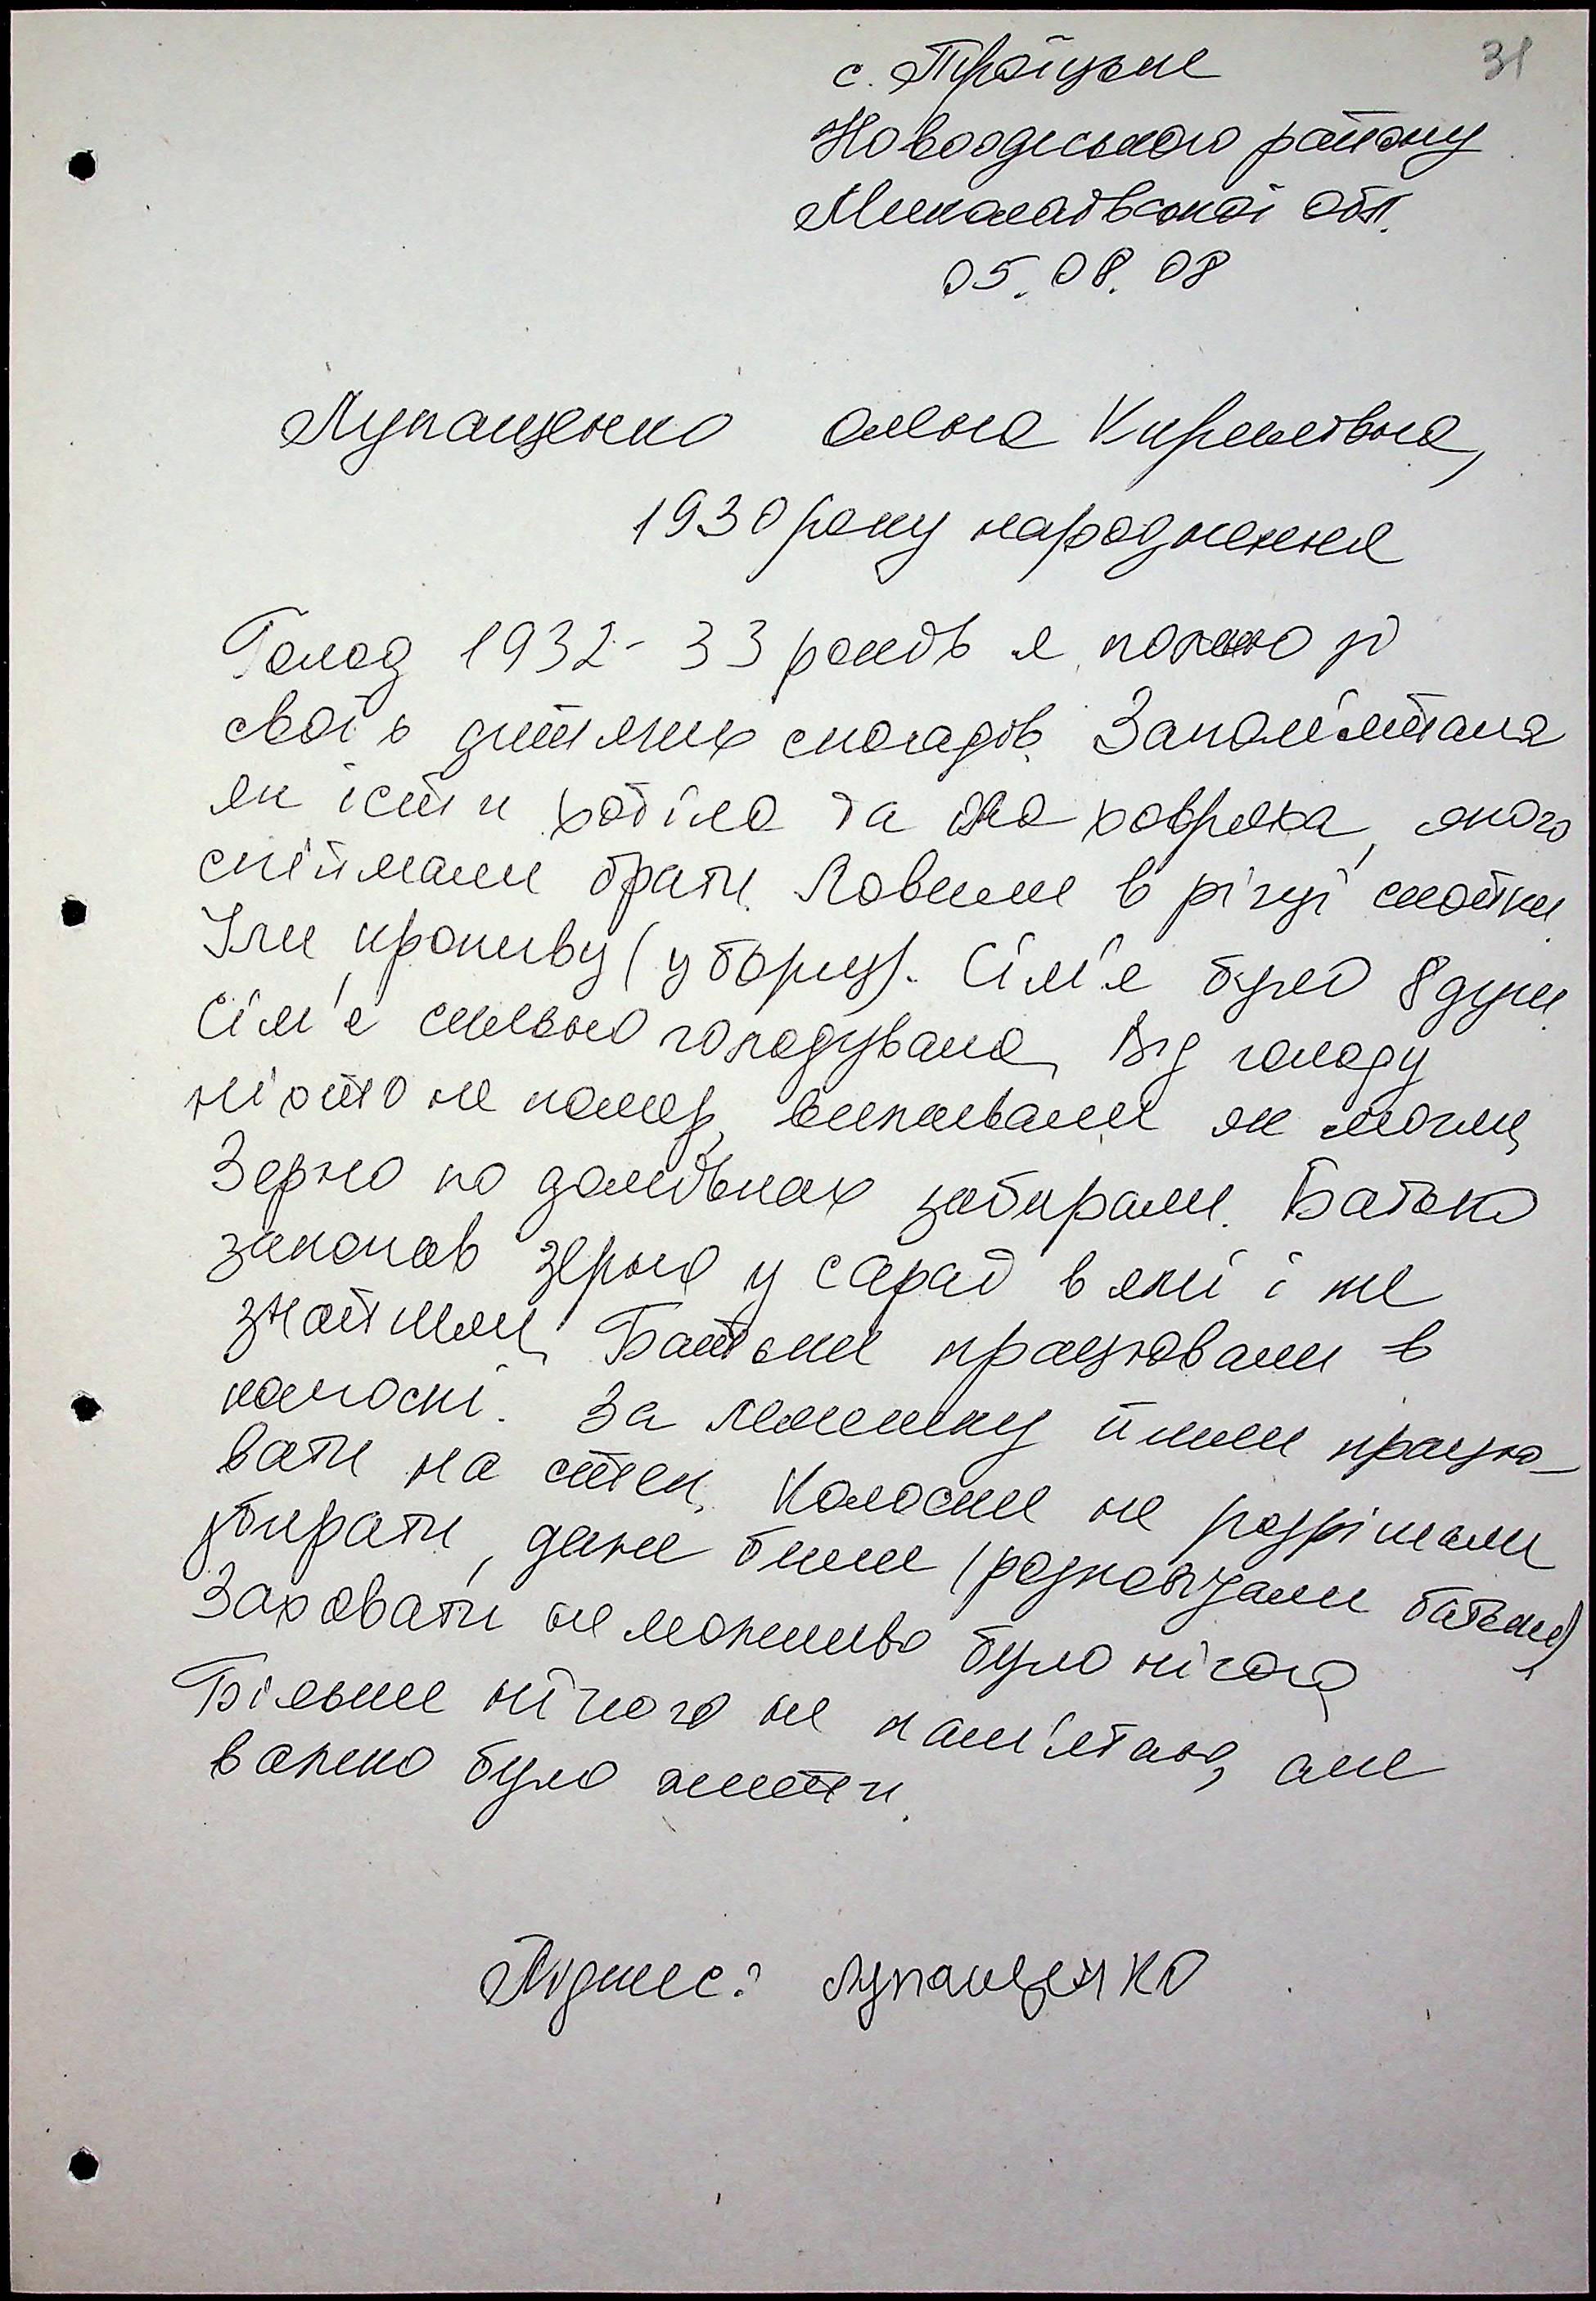 31
с. Троїцьке
Новоодеського району
Миколаївської обл.
05.08.08
Лупащенко Олена Кирилівна,
1930 року народження
Голод 1932-33 років я помню зі
своїх дитячих спогадів. Запам'ятала
як їсти хотіла та ховраха, якого
спіймали брати. Ловили в річці скойки.
Їли кропиву (у борщ). Сім'я було 8 душ.
Сім'я сильно голодувала. Від голоду
ніхто не помер, виживали як могли.
Зерно по домівках забирали. Батько
закопав зерно у сараї в ямі і не
знайшли. Батьки працювали в
колгоспі. За пляшку йшли працю-
вати на степ. Колоски не розрішали
збирати, даже били (розповідали батьки).
Заховати не можливо було нічого.
Більше нічого не пам'ятаю, але
важко було жити.
Підпис: Лупащенко